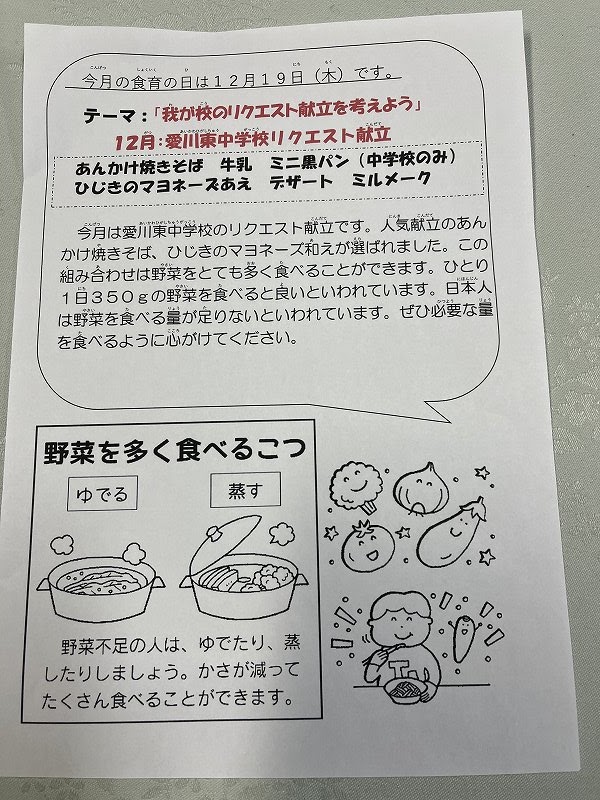 今月の食育の日は１２月１９日（木）です。
テーマ：「我が校のリクエスト献立を考えよう」
１２月：愛川東中学校リクエスト献立
あんかけ焼きそば　牛乳　ミニ黒パン（中学校のみ）
ひじきのマヨネーズあえ　デザート　ミルメーク
今月は愛川東中学校のリクエスト献立です。人気献立のあん
かけ焼きそば、ひじきのマヨネーズ和えが選ばれました。この
組み合わせは野菜をとても多く食べることができます。ひとり
１日３５０ｇの野菜を食べると良いといわれています。日本人
は野菜を食べる量が足りないといわれています。ぜひ必要な量
を食べるように心がけてください。
野菜を多く食べるこつ
ゆでる　蒸す
野菜不足の人は、ゆでたり、蒸
したりしましょう。かさが減って
たくさん食べることができます。